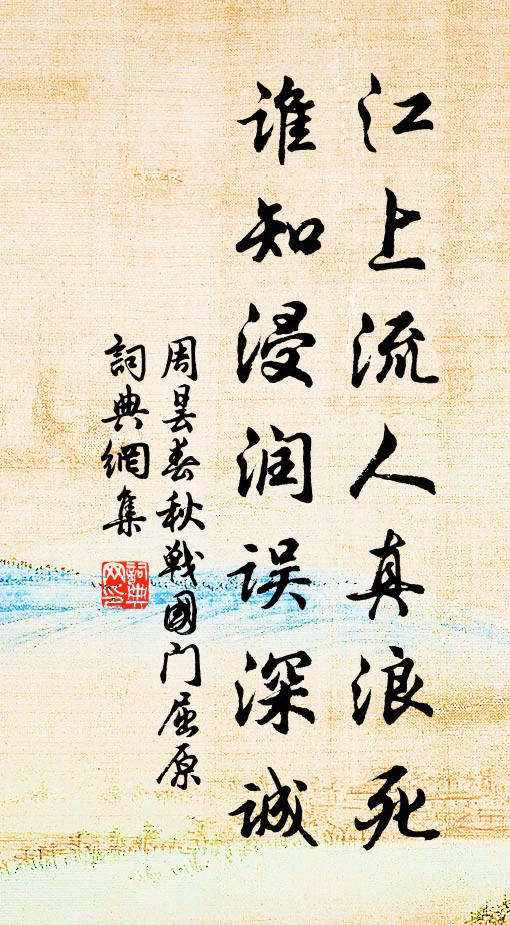 江上流人真浪死
谁知浸润误深诚
周昙春秋戰國门屈原
詞典網集
詞典网印